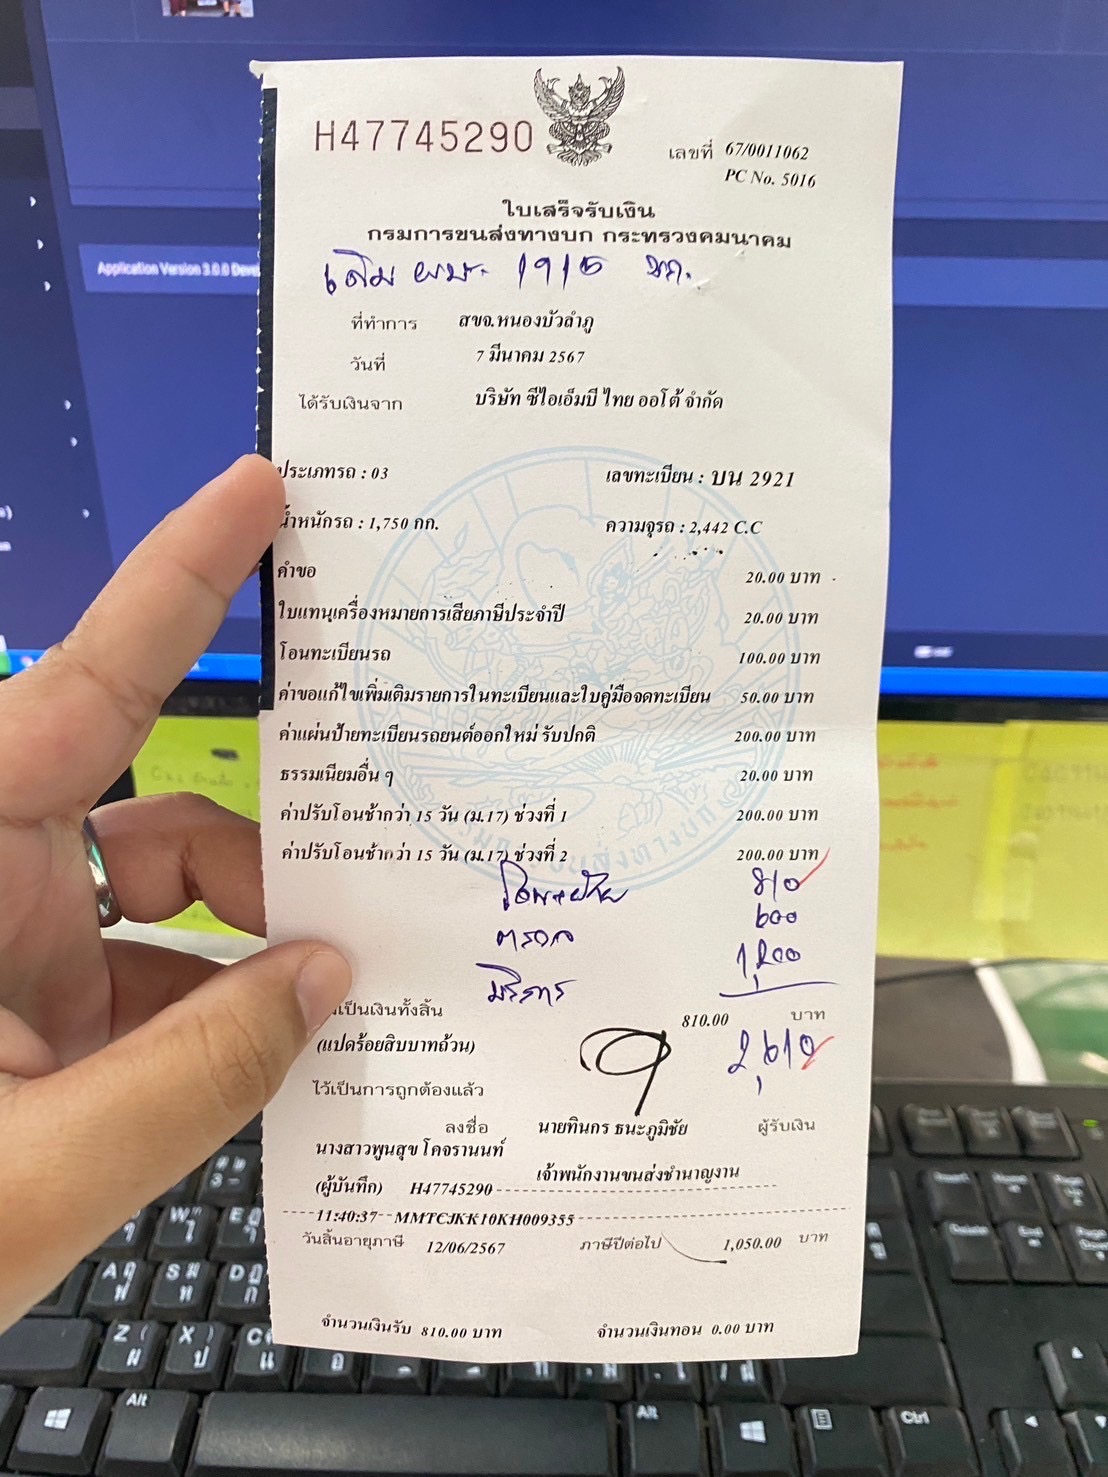 H47745290
เลขที่ 67/0011062
PC No. 5016
ใบเสร็จรับเงิน
กรมการขนส่งทางบก กระทรวงคมนาคม
เดิม ผษ. 1915 ขก.
ที่ทำการ สขจ.หนองบัวลำภู
วันที่ 7 มีนาคม 2567
ได้รับเงินจาก บริษัท ซีไอเอ็มบี ไทย ออโต้ จำกัด
ประเภทรถ : 03 เลขทะเบียน : บน 2921
น้ำหนักรถ : 1,750 กก. ความจุรถ : 2,442 C.C
คำขอ 20.00 บาท
ใบแทนเครื่องหมายการเสียภาษีประจำปี 20.00 บาท
โอนทะเบียนรถ 100.00 บาท
ค่าขอแก้ไขเพิ่มเติมรายการในทะเบียนและใบคู่มือจดทะเบียน 50.00 บาท
ค่าแผ่นป้ายทะเบียนรถยนต์ออกใหม่ รับปกติ 200.00 บาท
ธรรมเนียมอื่น ๆ 20.00 บาท
ค่าปรับโอนช้ากว่า 15 วัน (ม.17) ช่วงที่ 1 200.00 บาท
ค่าปรับโอนช้ากว่า 15 วัน (ม.17) ช่วงที่ 2 200.00 บาท
โอน+ย้าย 810
ตรวจ 600
บริการ 1,200
เป็นเงินทั้งสิ้น 810.00 บาท
(แปดร้อยสิบบาทถ้วน) 2,610
ไว้เป็นการถูกต้องแล้ว
ลงชื่อ นายทินกร ธนะภูมิชัย ผู้รับเงิน
นางสาวพูนสุข โคจรานนท์
เจ้าพนักงานขนส่งชำนาญงาน
(ผู้บันทึก) H47745290
11:40:37 MMTCJKK10KH009355
วันสิ้นอายุภาษี 12/06/2567 ภาษีปีต่อไป 1,050.00 บาท
จำนวนเงินรับ 810.00 บาท จำนวนเงินทอน 0.00 บาท
Application Version 3.0.0
Alt
Alt
Ctrl